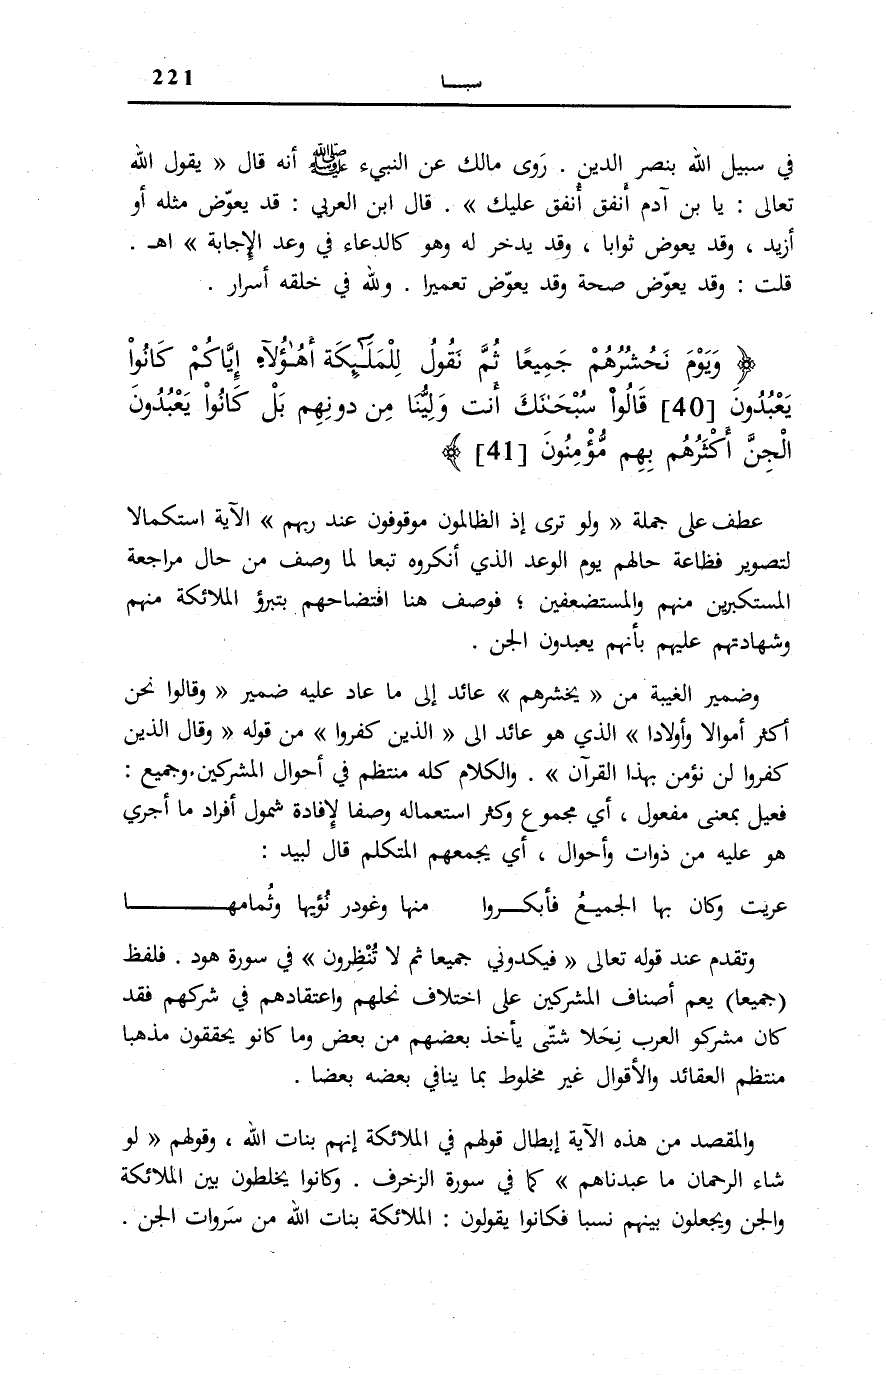 221
سبــا
في سبيل الله بنصر الدين . رَوى مالك عن النبيء ﷺ أنه قال « يقول الله
تعالى : يا بن آدم أَنفق أُنفق عليك » . قال ابن العربي : قد يعوّض مثله أو
أزيد ، وقد يعوض ثوابا ، وقد يدخر له وهو كالدعاء في وعد الإِجابة » اهـ .
قلت : وقد يعوّض صحة وقد يعوّض تعميرا . ولله في خلقه أسرار .
﴿ وَيَوْمَ نَحْشُرُهُمْ جَمِيعًا ثُمَّ نَقُولُ لِلْمَلَـٰٓئِكَةِ أَهَـٰٓؤُلَآءِ إِيَّاكُمْ كَانُواْ
يَعْبُدُونَ [40] قَالُواْ سُبْحَـٰنَكَ أَنتَ وَلِيُّنَا مِن دونِهِم بَلْ كَانُواْ يَعْبُدُونَ
الْجِنَّ أَكْثَرُهُم بِهِم مُّؤْمِنُونَ [41] ﴾
عطف على جملة « ولو ترى إذ الظالمون موقوفون عند ربهم » الآية استكمالا
لتصوير فظاعة حالهم يوم الوعد الذي أنكروه تبعا لما وصف من حال مراجعة
المستكبرين منهم والمستضعفين ؛ فوصف هنا افتضاحهم بتبرؤ الملائكة منهم
وشهادتهم عليهم بأنهم يعبدون الجن .
وضمير الغيبة من « يحشرهم » عائد إلى ما عاد عليه ضمير « وقالوا نحن
أكثر أموالا وأولادا » الذي هو عائد الى « الذين كفروا » من قوله « وقال الذين
كفروا لن نؤمن بهذا القرآن » . والكلام كله منتظم في أحوال المشركين.وجميع :
فعيل بمعنى مفعول ، أي مجموع وكثر استعماله وصفا لإفادة شمول أفراد ما أجري
هو عليه من ذوات وأحوال ، أي يجمعهم المتكلم قال لبيد :
عريت وكان بها الجميعُ فأبكــروا منها وغودر نُؤيها وثُمامهـــــــــا
وتقدم عند قوله تعالى « فيكدوني جميعا ثم لا تُنْظِرون » في سورة هود . فلفظ
(جميعا) يعم أصناف المشركين على اختلاف نحلهم واعتقادهم في شركهم فقد
كان مشركو العرب نِحَلا شتّى يأخذ بعضهم من بعض وما كانو يحققون مذهبا
منتظم العقائد والأقوال غير مخلوط بما ينافي بعضه بعضا .
والمقصد من هذه الآية إبطال قولهم في الملائكة إنهم بنات الله ، وقولهم « لو
شاء الرحمان ما عبدناهم » كما في سورة الزخرف . وكانوا يخلطون بين الملائكة
والجن ويجعلون بينهم نسبا فكانوا يقولون : الملائكة بنات الله من سَروات الجن .